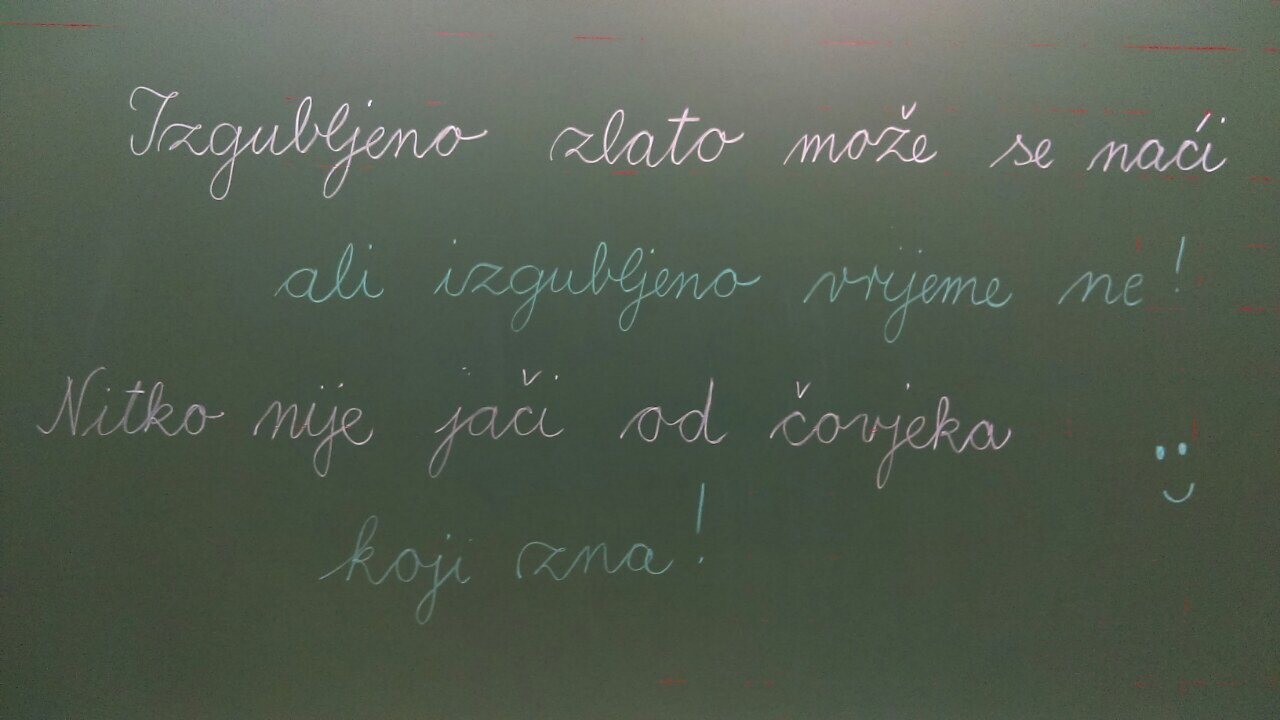 Izgubljeno zlato može se naći
ali izgubljeno vrijeme ne!
Nitko nije jači od čovjeka
koji zna!